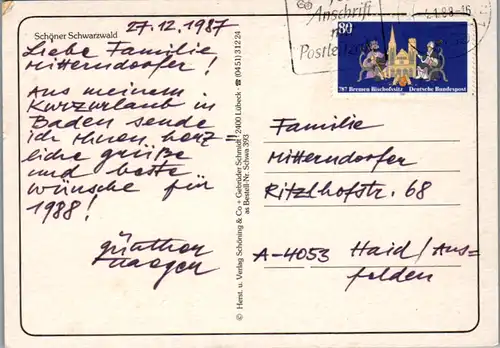 27.12.1987
Schöner Schwarzwald
Liebe Familie
Mitterndorfer!
Aus meinem
Kurzurlaub in
Baden sende
ich Ihnen herz-
liche grüße
und beste
wünsche für
1988!
günther
© Herst. u. Verlag Schöning & Co + Gebrüder Schmidt / 2400 Lübeck · ☎ (04 51) 3 12 24
as Bestell-Nr. Schwa 393
Anschrift
Postleitzahl
80
787 Bremen Bischofssitz Deutsche Bundespost
Familie
Mitterndorfer
Ritzlhofstr. 68
A-4053 Haid/Ans=
felden